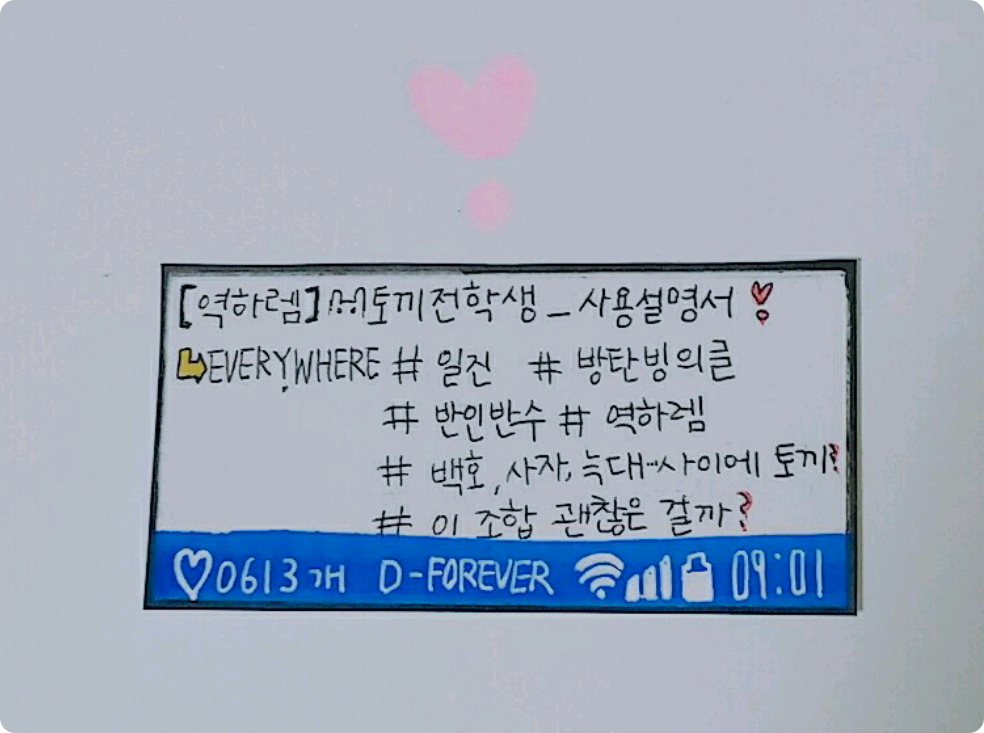 [역하렘] 토끼전학생_사용설명서
EVERYWHERE # 일진 # 방탄빙의글
# 반인반수 # 역하렘
# 백호, 사자, 늑대…사이에 토끼?
# 이 조합 괜찮은 걸까?
0613개 D-FOREVER 09:01